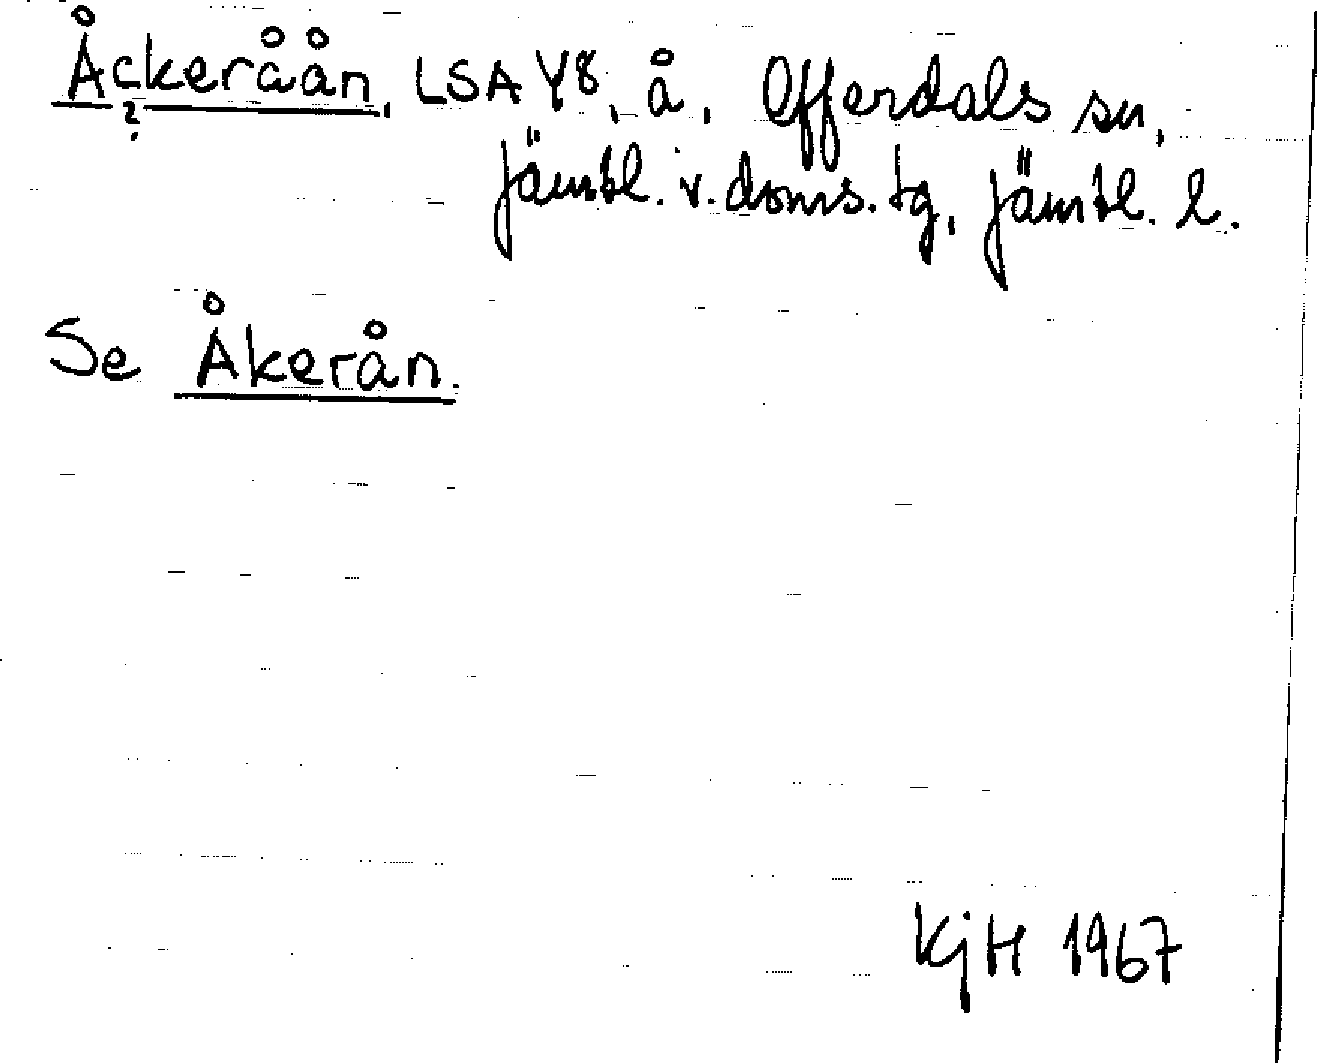 Åckeråån, LSA Y8, å, Offerdals sn,
?
jämtl. v. doms. tg, jämtl. l.
Se Åkerån.
KjH 1967